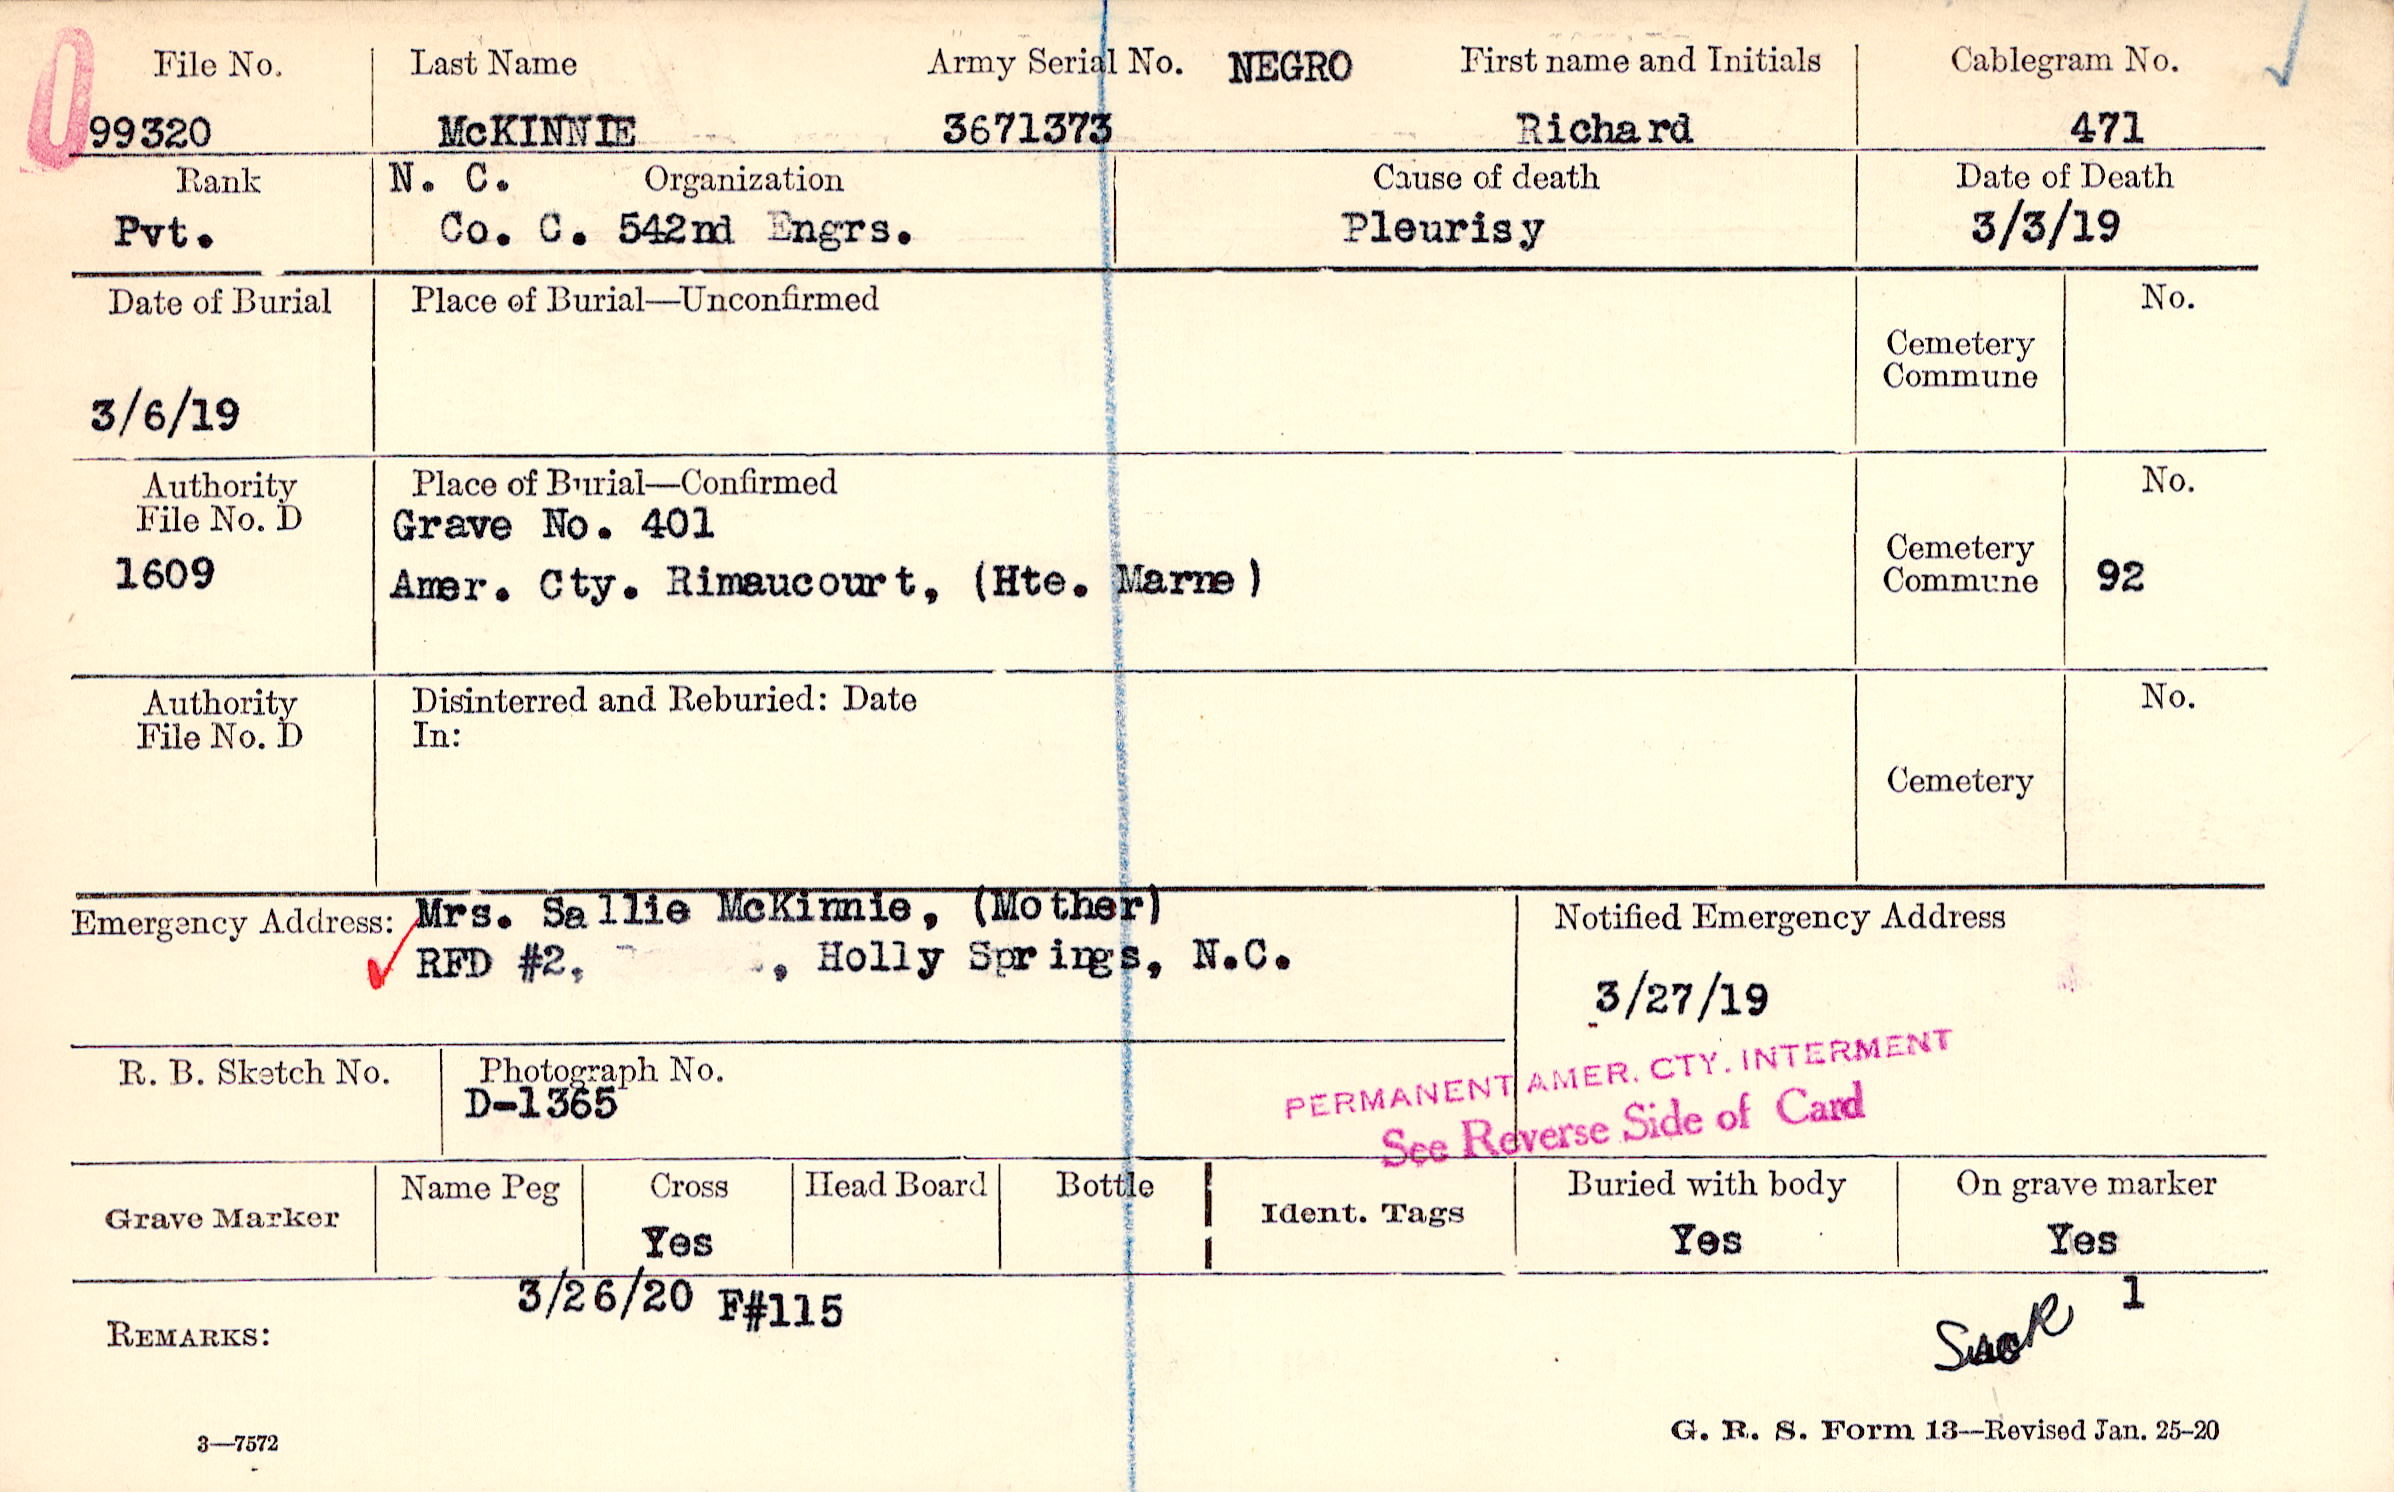 File No. Last Name Army Serial No. NEGRO First name and Initials Cablegram No.
99320 McKINNIE 3671373 Richard 471
Rank N. C. Organization Cause of death Date of Death
Pvt. Co. C. 542nd Engrs. Pleurisy 3/3/19
Date of Burial Place of Burial—Unconfirmed No.
Cemetery
Commune
3/6/19
Authority Place of Burial—Confirmed No.
File No. D Grave No. 401
Cemetery
1609 Amer. Cty. Rimaucourt, (Hte. Marne) Commune 92
Authority Disinterred and Reburied: Date No.
File No. D In:
Cemetery
Emergency Address: Mrs. Sallie McKinnie, (Mother) Notified Emergency Address
RFD #2, , Holly Springs, N.C.
3/27/19
R. B. Sketch No. Photograph No.
D-1365
PERMANENT AMER. CTY. INTERMENT
See Reverse Side of Card
Grave Marker Name Peg Cross Head Board Bottle Ident. Tags Buried with body On grave marker
Yes Yes Yes
3/26/20 F#115 1
REMARKS:
3—7572 G. R. S. Form 13—Revised Jan. 25-20